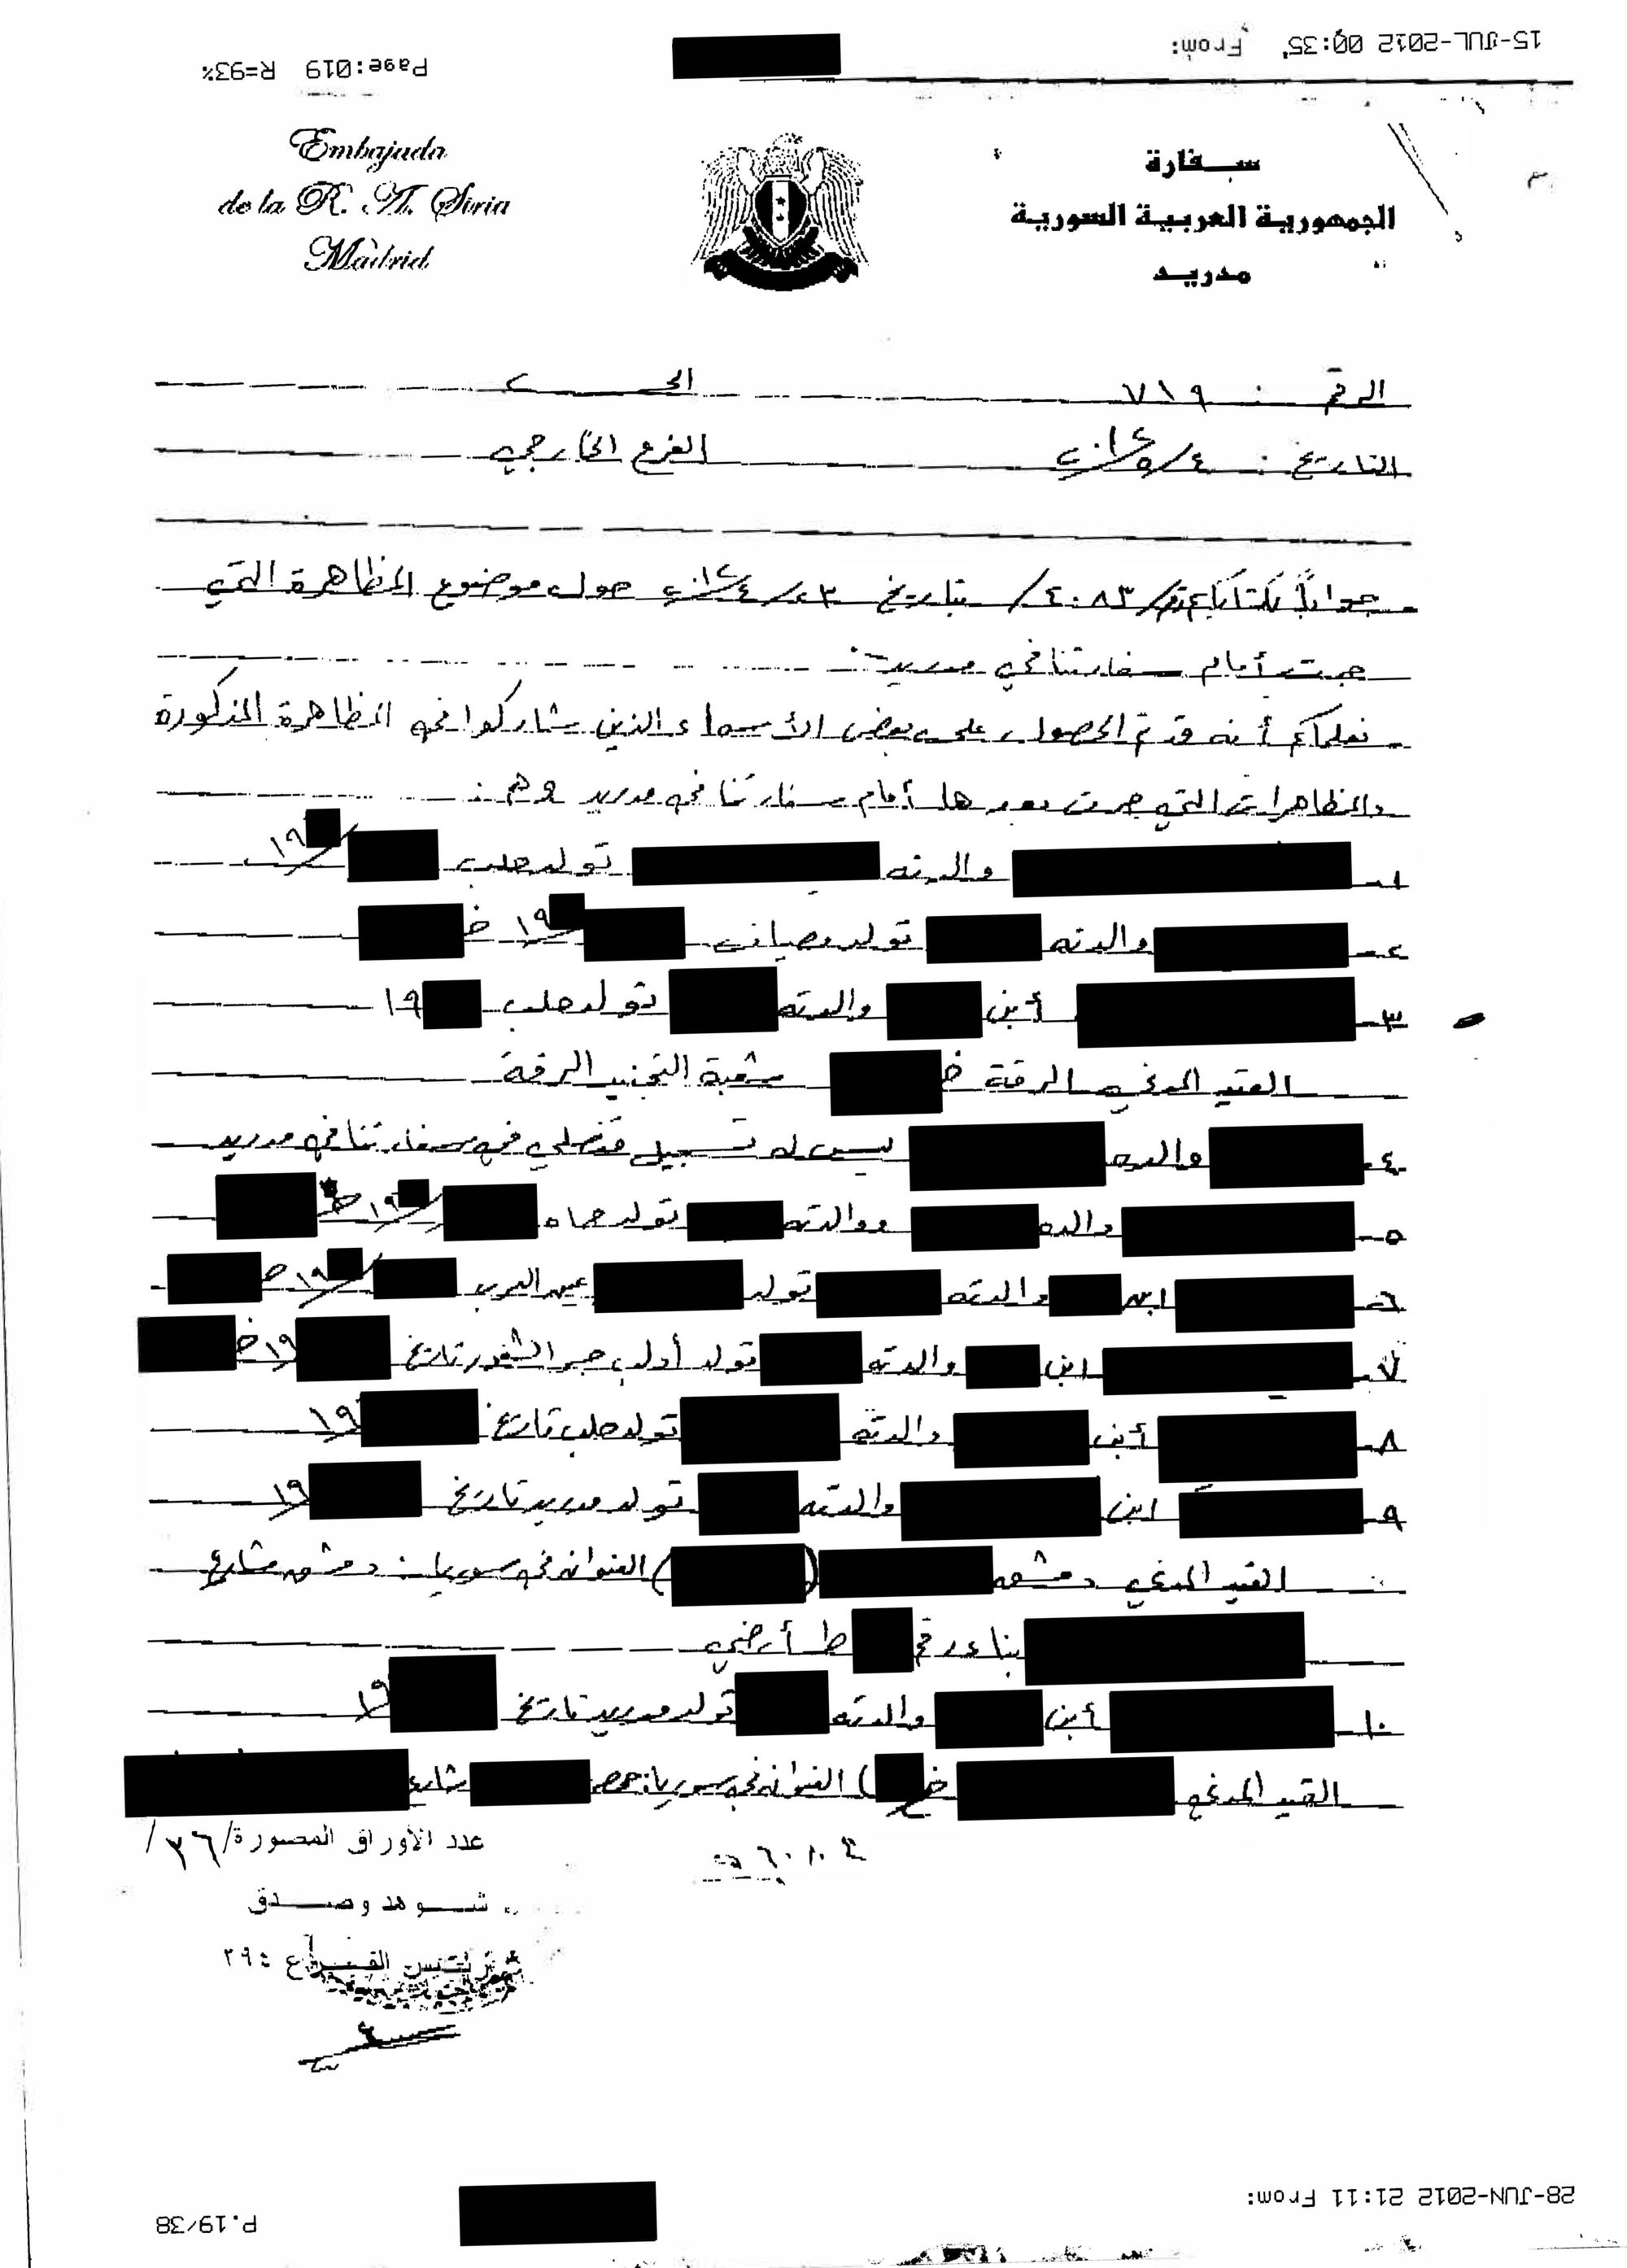 15-JUL-2012 00:35 From:
Page:019 R=93%
Embajada
de la R. A. Siria
Màdrid
سفارة
الجمهورية العربية السورية
مدريد
الرقم : ٧١٩ الى
التاريخ : ٤/٥/٢٠١٢ الفرع الخارجي
جواباً لكتابكم رقم /٤٠٨٣/ بتاريخ ٢٠١٢/٤/٢٣ حول موضوع المظاهرة التي
جرت أمام سفارتنا في مدريد :
نعلمكم أنه قد تم الحصول على بعض الأسماء الذين شاركوا في المظاهرة المذكورة
والمظاهرات التي جرت بعدها أمام سفارتنا في مدريد وهم :
١- والدته تولد حلب /١٩
٢- والدته تولد مصياف /١٩ خ
٣- أبن والدته تولد حلب ١٩
القيد المدني الرقة خ شعبة التجنيد الرقة
٤- والده ليس له تسجيل قنصلي في سفارتنا في مدريد
٥- والده ووالدته تولد حماه /١٩ خ
٦- ابن والدته تولد عين العرب /١٩ خ
٧- ابن والدته تولد أدلب جسر الشغور تاريخ ١٩ خ
٨- أبن والدته تولد حلب تاريخ ١٩
٩- ابن والدته تولد مدريد تاريخ ١٩
القيد المدني دمشق ( ) العنوان في سوريا : دمشق شارع
بناء رقم ط أرضي
١٠- أبن والدته تولد مدريد تاريخ ١٩
القيد المدني خ ) العنوان في سوريا : حمص شارع
عدد الأوراق المصورة /٣٦/
شوهد وصدق
28-JUN-2012 21:11 From:
P.19/38